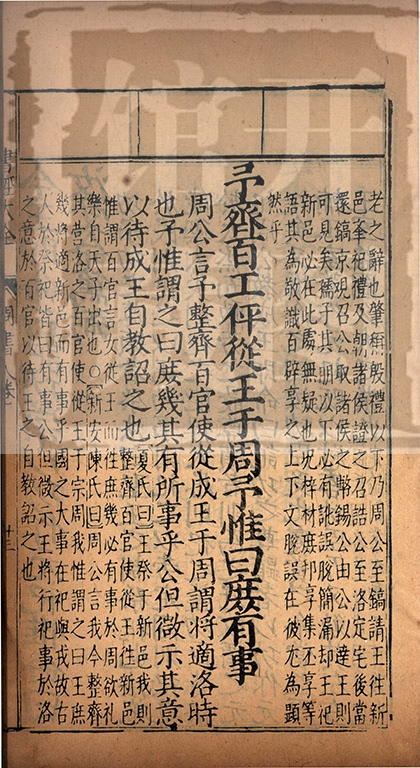 老之辭也肇稱殷禮以下乃周公至鎬請王徃新
邑奉祀禮及朝諸侯證之召誥公至洛定宅後當
還鎬京現召公取諸侯之幣錫公由公以達王則
可見矣孺子其朋以下必有訛誤脫簡漏却王祀
新邑必在此處無疑也况梓材庶邦享集丕享等
語其為敬識百辟享之上下文脫誤在彼尤為顯
然乎
予齊百工伻從王于周予惟曰庶有事
周公言予整齊百官使從成王于周謂將適洛時
也予惟謂之曰庶幾其有所事乎公但微示其意
以待成王自教詔之也
夏氏曰王祭于新邑我則
整齊百官使從王往新邑
惟謂百官言女從王而往庶幾必有事於周欲禮
樂自天子出也○新安陳氏曰周公言我今整齊
其營洛之百官使從王于宗周我惟謂之曰王庶
幾將適新邑而有事乎國之大事在祀與戎故古
人於祭祀皆曰有事公但微示王將行祀事於洛
之意於百官以待王之自教詔之也
書經大全
周書
卷
十三